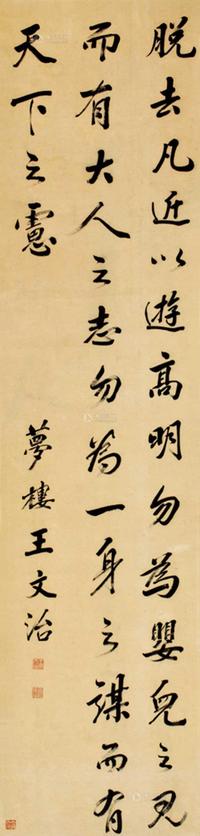 脱去凡近以遊高明勿為嬰兒之見
而有大人之志勿為一身之謀而有
天下之慮
夢樓王文治